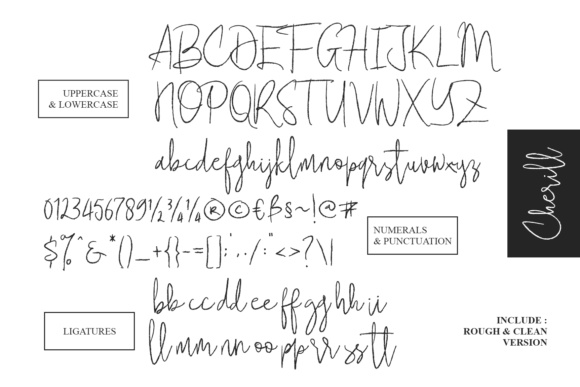 ABCDEFGHIJKLM
UPPERCASE
& LOWERCASE
NOPQRSTUVWXYZ
abcdefghijklmnopqrstuvwxyz
Cherill
0123456789½¾¼¼®©€ß§~!@#
NUMERALS
& PUNCTUATION
$%^&*()_+{}-=[]',./:"<>?\|
bb cc dd ee ff gg hh ii
LIGATURES
ll mm nn oo pp rr ss tt
INCLUDE :
ROUGH & CLEAN
VERSION